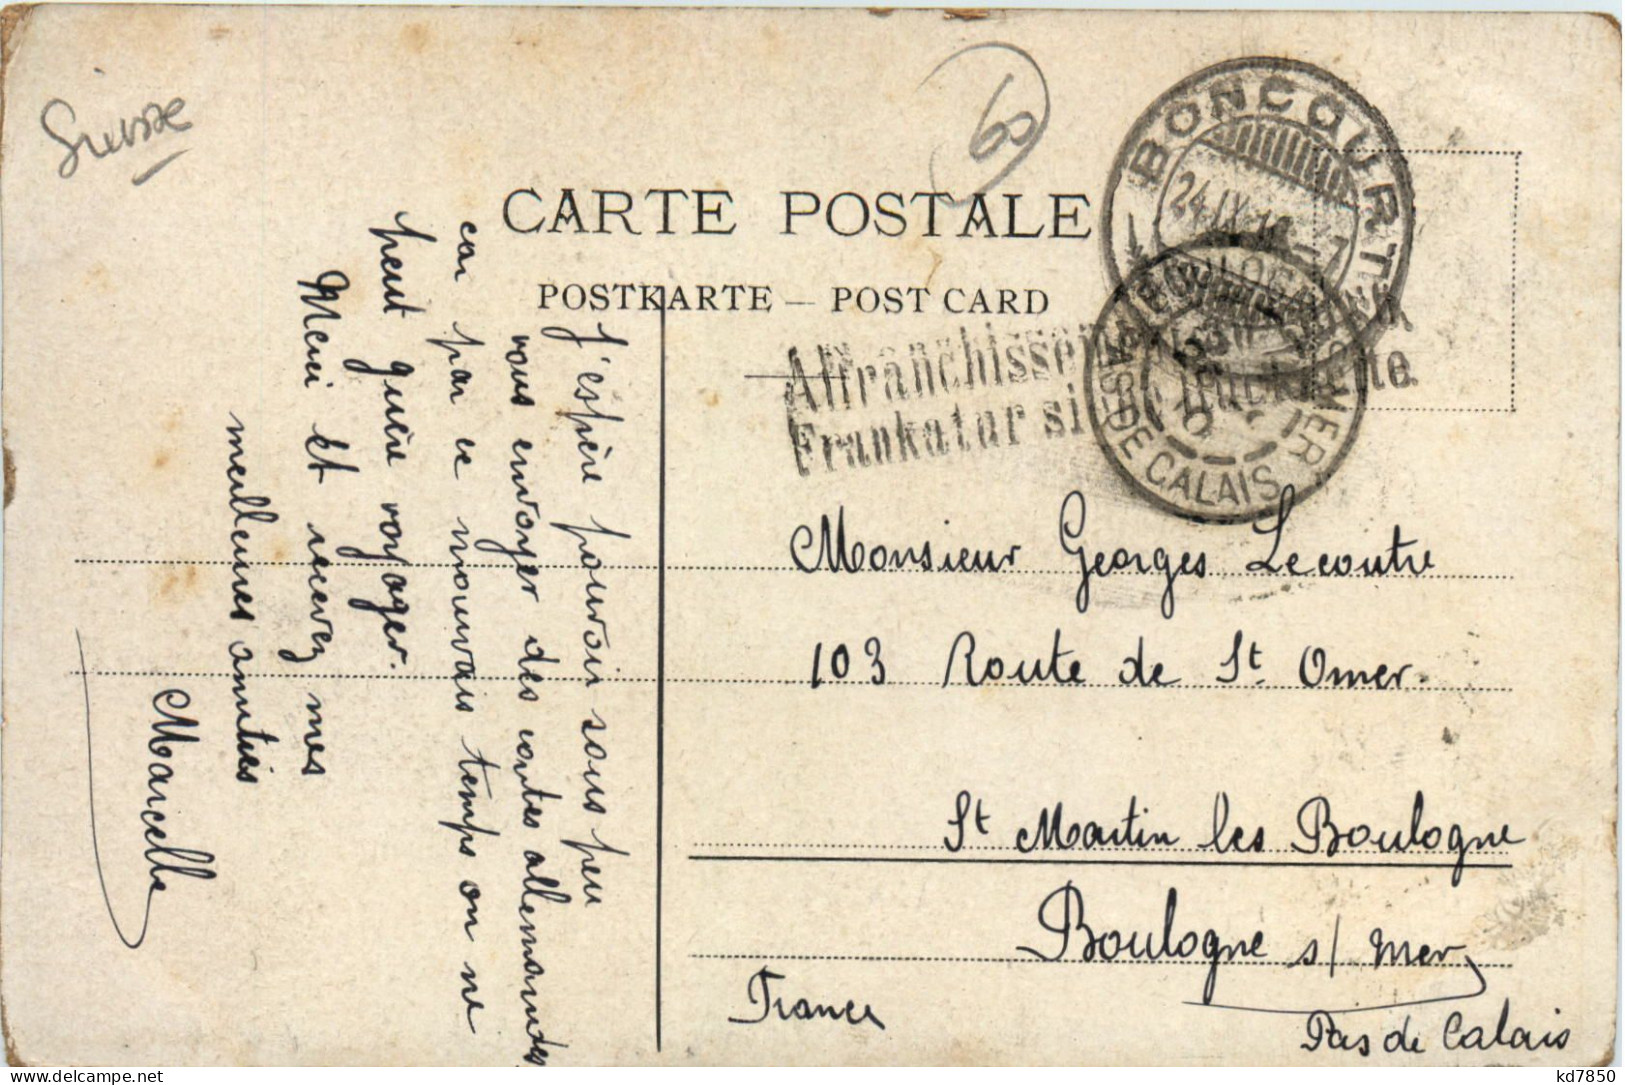 Suisse
69
CARTE POSTALE
POSTKARTE — POST CARD
BONCOURT
24.IX.12
BOULOGNE SUR MER
PAS DE CALAIS
Affranchissement
Frankatur siehe Rückseite.
J'espère pouvoir sous peu
vous envoyer des cartes allemandes
car par ce mauvais temps on ne
peut guère voyager.
Merci et recevez mes
meilleures amitiés
Marcelle
Monsieur Georges Lecoutre
103 Route de St. Omer.
St Martin les Boulogne
Boulogne s/ mer
France
Pas de Calais
kd7850